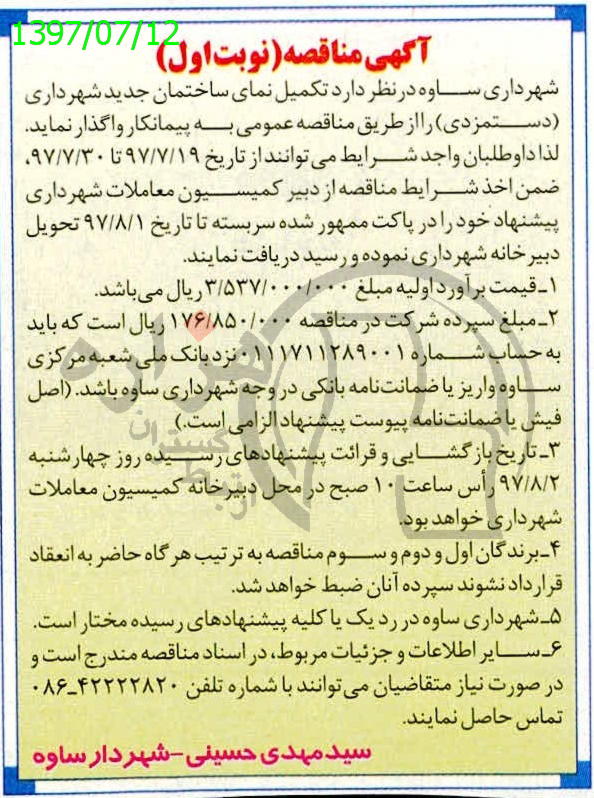 1397/07/12
آگهی مناقصه (نوبت اول)
شهرداری ساوه در نظر دارد تکمیل نمای ساختمان جدید شهرداری
(دستمزدی) را از طریق مناقصه عمومی به پیمانکار واگذار نماید.
لذا داوطلبان واجد شرایط می توانند از تاریخ ۹۷/۷/۱۹ تا ۹۷/۷/۳۰،
ضمن اخذ شرایط مناقصه از دبیر کمیسیون معاملات شهرداری
پیشنهاد خود را در پاکت ممهور شده سربسته تا تاریخ ۹۷/۸/۱ تحویل
دبیرخانه شهرداری نموده و رسید دریافت نمایند.
۱ـ قیمت برآورد اولیه مبلغ ۳/۵۳۷/۰۰۰/۰۰۰ ریال می‌باشد.
۲ـ مبلغ سپرده شرکت در مناقصه ۱۷۶/۸۵۰/۰۰۰ ریال است که باید
به حساب شماره ۰۱۱۱۷۱۱۲۸۹۰۰۱ نزد بانک ملی شعبه مرکزی
ساوه واریز یا ضمانت‌نامه بانکی در وجه شهرداری ساوه باشد. (اصل
فیش یا ضمانت‌نامه پیوست پیشنهاد الزامی است.)
۳ـ تاریخ بازگشایی و قرائت پیشنهادهای رسیده روز چهارشنبه
۹۷/۸/۲ رأس ساعت ۱۰ صبح در محل دبیرخانه کمیسیون معاملات
شهرداری خواهد بود.
۴ـ برندگان اول و دوم و سوم مناقصه به ترتیب هرگاه حاضر به انعقاد
قرارداد نشوند سپرده آنان ضبط خواهد شد.
۵ـ شهرداری ساوه در رد یک یا کلیه پیشنهادهای رسیده مختار است.
۶ـ سایر اطلاعات و جزئیات مربوط، در اسناد مناقصه مندرج است و
در صورت نیاز متقاضیان می‌توانند با شماره تلفن ۴۲۲۲۲۸۲۰ـ۰۸۶
تماس حاصل نمایند.
سید مهدی حسینی - شهردار ساوه